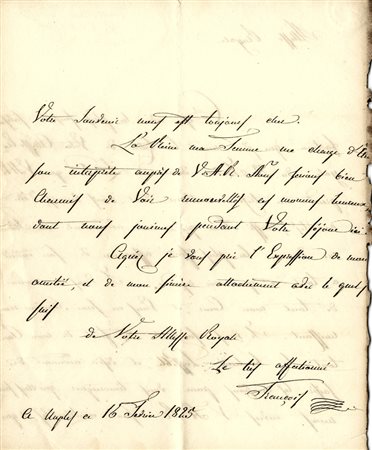 Votre Souvenir nous est toujours cher.
La Reine ma Femme me charge d'être
son interprète auprès de V.A.R. Nous serions bien
charmés de Voir renouvellés ces momens heureux
dont nous jouimes pendant Votre séjour ici.
Agréez je vous prie l'Expression de mon
amitié, et de mon sincère attachement avec le quel je
suis
de Votre Altesse Royale
Le très affectionné
François
à Naples ce 15 Février 1825